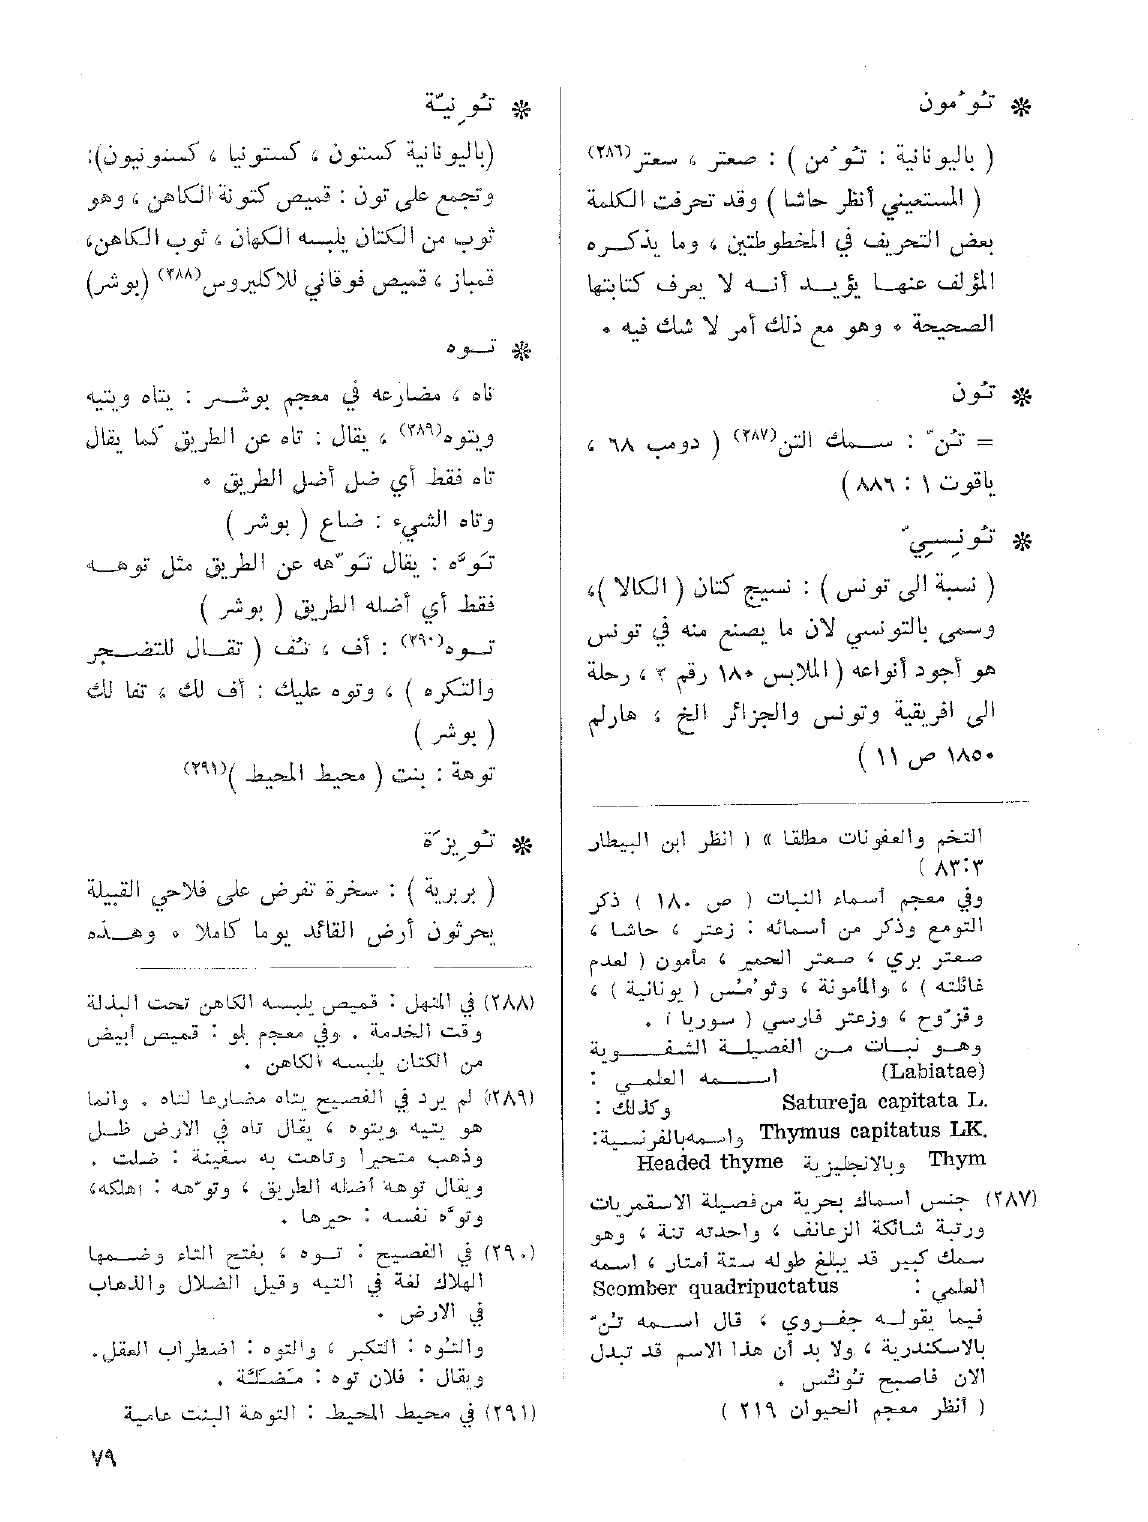 * تُومُون
( باليونانية : تُومُن ) : صعتر ، سعتر(٢٨٦)
( المستعيني أنظر حاشا ) وقد تحرفت الكلمة
بعض التحريف في المخطوطتين ، وما يذكره
المؤلف عنها يؤيد أنه لا يعرف كتابتها
الصحيحة . وهو مع ذلك أمر لا شك فيه .
* تُون
= تُنّ : سمك التن(٢٨٧) ( دومب ٦٨ ،
ياقوت ١ : ٨٨٦ )
* تُونِسِيّ
( نسبة الى تونس ) : نسيج كتان ( الكالا )،
وسمى بالتونسي لان ما يصنع منه في تونس
هو أجود أنواعه ( الملابس ١٨٠ رقم ٢ ، رحلة
الى افريقية وتونس والجزائر الخ ، هارلم
١٨٥٠ ص ١١ )
التخم والعفونات مطلقا » ( انظر ابن البيطار
٨٣:٣ )
وفي معجم أسماء النبات ( ص ١٨٠ ) ذكر
التومع وذكر من أسمائه : زعتر ، حاشا ،
صعتر بري ، صعتر الحمير ، مأمون ( لعدم
غائلته ) ، والمأمونة ، وثومُس ( يونانية ) ،
وقزوح ، وزعتر فارسي ( سوريا ) .
وهو نبات من الفصيلة الشفوية
(Labiatae) اسمه العلمي :
Satureja capitata L. وكذلك :
Thymus capitatus LK. واسمه بالفرنسية :
Thym وبالانجليزية Headed thyme
(٢٨٧) جنس اسماك بحرية من فصيلة الاسقمريات
ورتبة شائكة الزعانف ، واحدته تنة ، وهو
سمك كبير قد يبلغ طوله ستة أمتار ، اسمه
العلمي : Scomber quadripuctatus
فيما يقوله جفروي ، قال اسمه تنّ
بالاسكندرية ، ولا بد أن هذا الاسم قد تبدل
الان فاصبح تونس .
( أنظر معجم الحيوان ٢١٩ )
* تُونِيّة
(باليونانية كستون ، كستونيا ، كسنونيون):
وتجمع على تون : قميص كتونة الكاهن ، وهو
ثوب من الكتان يلبسه الكهان ، ثوب الكاهن،
قمباز ، قميص فوقاني للاكليروس(٢٨٨) (بوشر)
* توه
تاه ، مضارعه في معجم بوشر : يتاه ويتيه
ويتوه(٢٨٩) ، يقال : تاه عن الطريق كما يقال
تاه فقط أي ضل أضل الطريق .
وتاه الشيء : ضاع ( بوشر )
تَوَّه : يقال تَوَّهه عن الطريق مثل توهه
فقط أي أضله الطريق ( بوشر )
توه(٢٩٠) : أف ، تُف ( تقال للتضجر
والتكره ) ، وتوه عليك : أف لك ، تفا لك
( بوشر )
توهة : بنت ( محيط المحيط )(٢٩١)
* تُوِيزَة
( بربرية ) : سخرة تفرض على فلاحي القبيلة
يحرثون أرض القائد يوما كاملا . وهذه
(٢٨٨) في المنهل : قميص يلبسه الكاهن تحت البدلة
وقت الخدمة . وفي معجم بلو : قميص أبيض
من الكتان يلبسه الكاهن .
(٢٨٩) لم يرد في الفصيح يتاه مضارعا لتاه . وانما
هو يتيه ويتوه ، يقال تاه في الارض ظل
وذهب متحيرا وتاهت به سفينة : ضلت .
ويقال توهه أضله الطريق ، وتوّهه : اهلكه،
وتوّه نفسه : حيرها .
(٢٩٠) في الفصيح : توه ، بفتح التاء وضمها
الهلاك لغة في التيه وقيل الضلال والذهاب
في الارض .
والتوه : التكبر ، والتوه : اضطراب العقل.
ويقال : فلان توه : مَضَلّة .
(٢٩١) في محيط المحيط : التوهة البنت عامية
٧٩